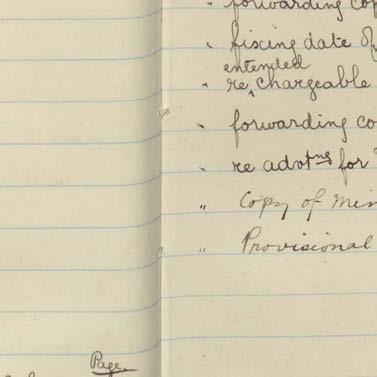 " forwarding cop
" fixing date of
extended
" re ^ chargeable
" forwarding co
" re advtng for
" Copy of Min
" Provisional
Page